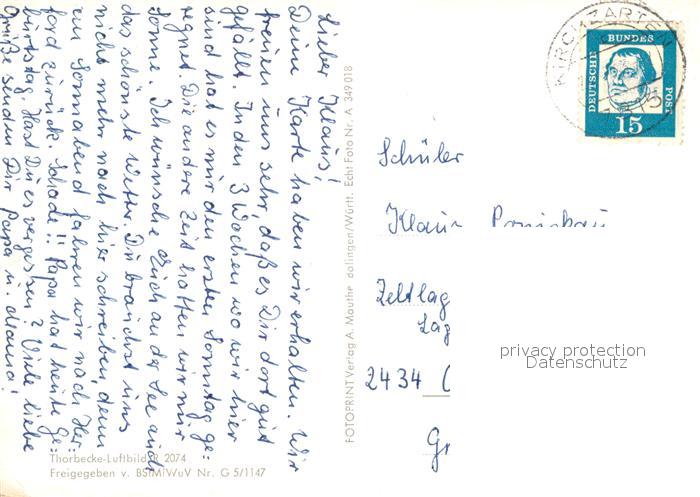 Lieber Klaus!
Deine Karte haben wir erhalten. Wir
freuen uns sehr, daß es Dir dort gut
gefällt. In den 3 Wochen wo wir hier
sind hat es mir den ersten Sonntag ge-
regnet. Die andere Zeit hatten wir nur
Sonne. Ich wünsche Euch an der See auch
das schönste Wetter. Du brauchst uns
nicht mehr nach hier schreiben, denn
am Sonnabend fahren wir nach Her-
ford zurück. Schade!! Papa hat heute Ge-
burtstag. Hast Du es vergessen? Viele liebe
Grüße senden Dir Papa u. Mama!
Thorbecke-Luftbild R 2074
Freigegeben v. BStMiWuV Nr. G 5/1147
FOTOPRINT Verlag A. Mauthe dolingen/Württ. Echt Foto Nr. A 349 018
KIRCHZARTEN
DEUTSCHE
BUNDES
POST
15
Schüler
Klaus
Zeltlag
Lag
2434 (
Gr
privacy protection
Datenschutz